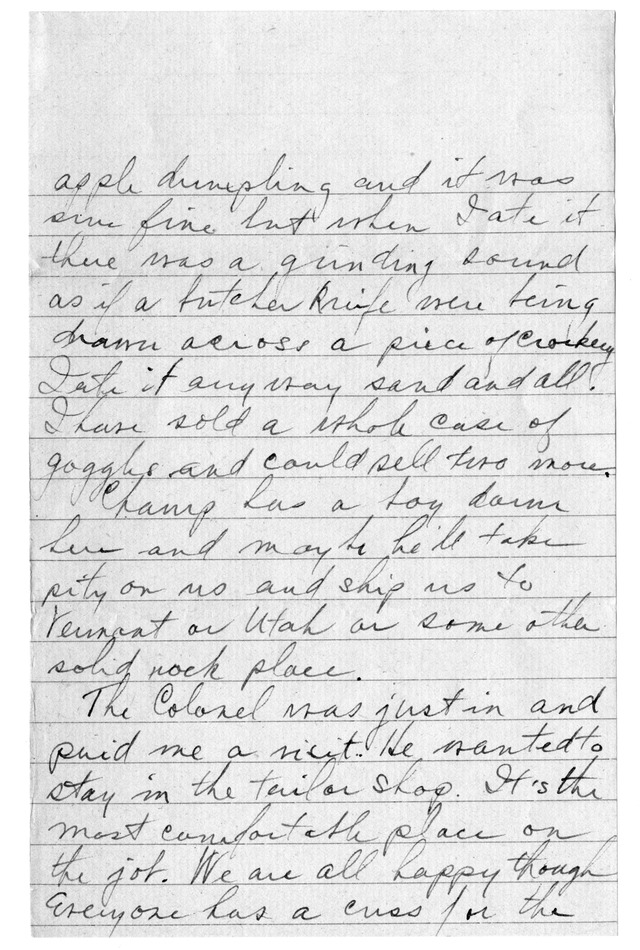 apple dumpling and it was
sure fine but when I ate it
there was a grinding sound
as if a butcher knife were being
drawn across a piece of crockery
I ate it anyway sand and all.
I have sold a whole case of
goggles and could sell two more.
Champ has a boy down
here and maybe he'll take
pity on us and ship us to
Vermont or Utah or some other
solid rock place.
The Colonel was just in and
paid me a visit. He wanted to
stay in the tailor shop. It's the
most comfortable place on
the job. We are all happy though
Everyone has a cuss for the